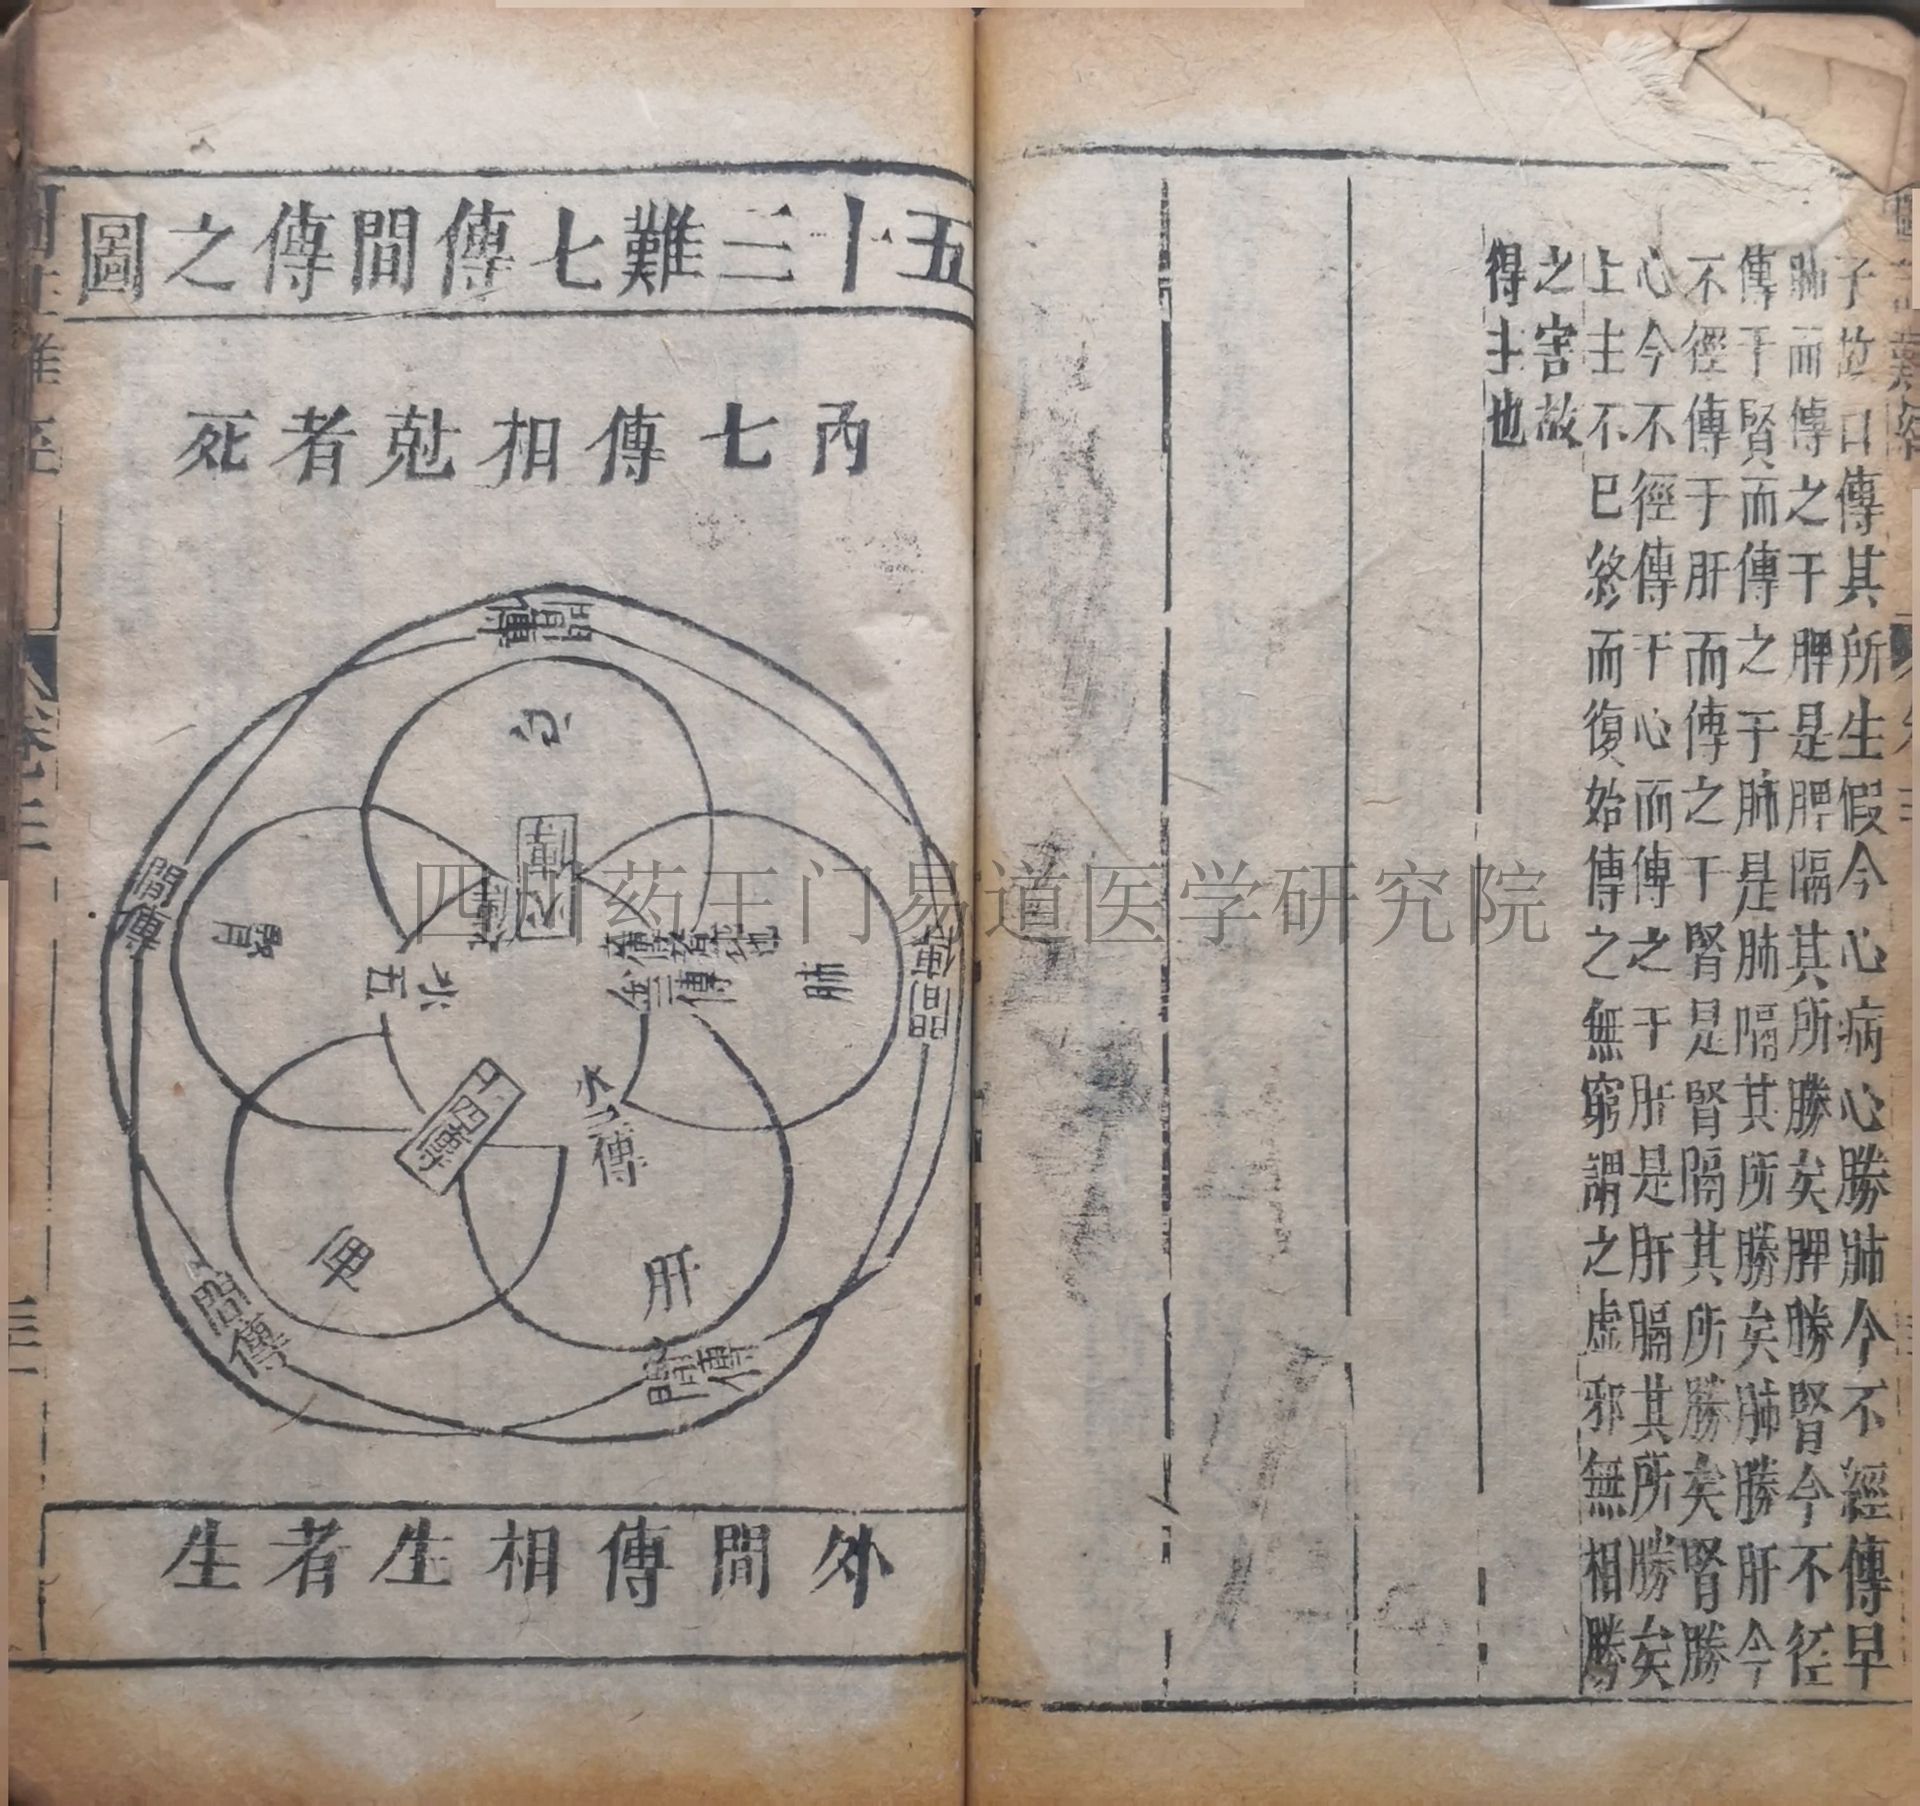 子故曰傳其所生假令心病心勝肺今不經傳早
肺而傳之于脾是脾隔其所勝矣脾勝腎今不径
傳于腎而傳之于肺是肺隔其所勝矣肺勝肝今
不徑傳于肝而傳之于腎是腎隔其所勝矣腎勝
心今不徑傳于心而傳之于肝是肝膈其所勝矣
上主不已終而復始傳之無窮謂之虛邪無相勝
之害故
得主也
五十三難七傳間傳之圖
內七傳相尅者死
間傳
心
內傳
腎
肺
間傳
間傳
水五
水一傳
肝
間傳
間傳
外間傳相生者生
卷三
四川药王门易道医学研究院